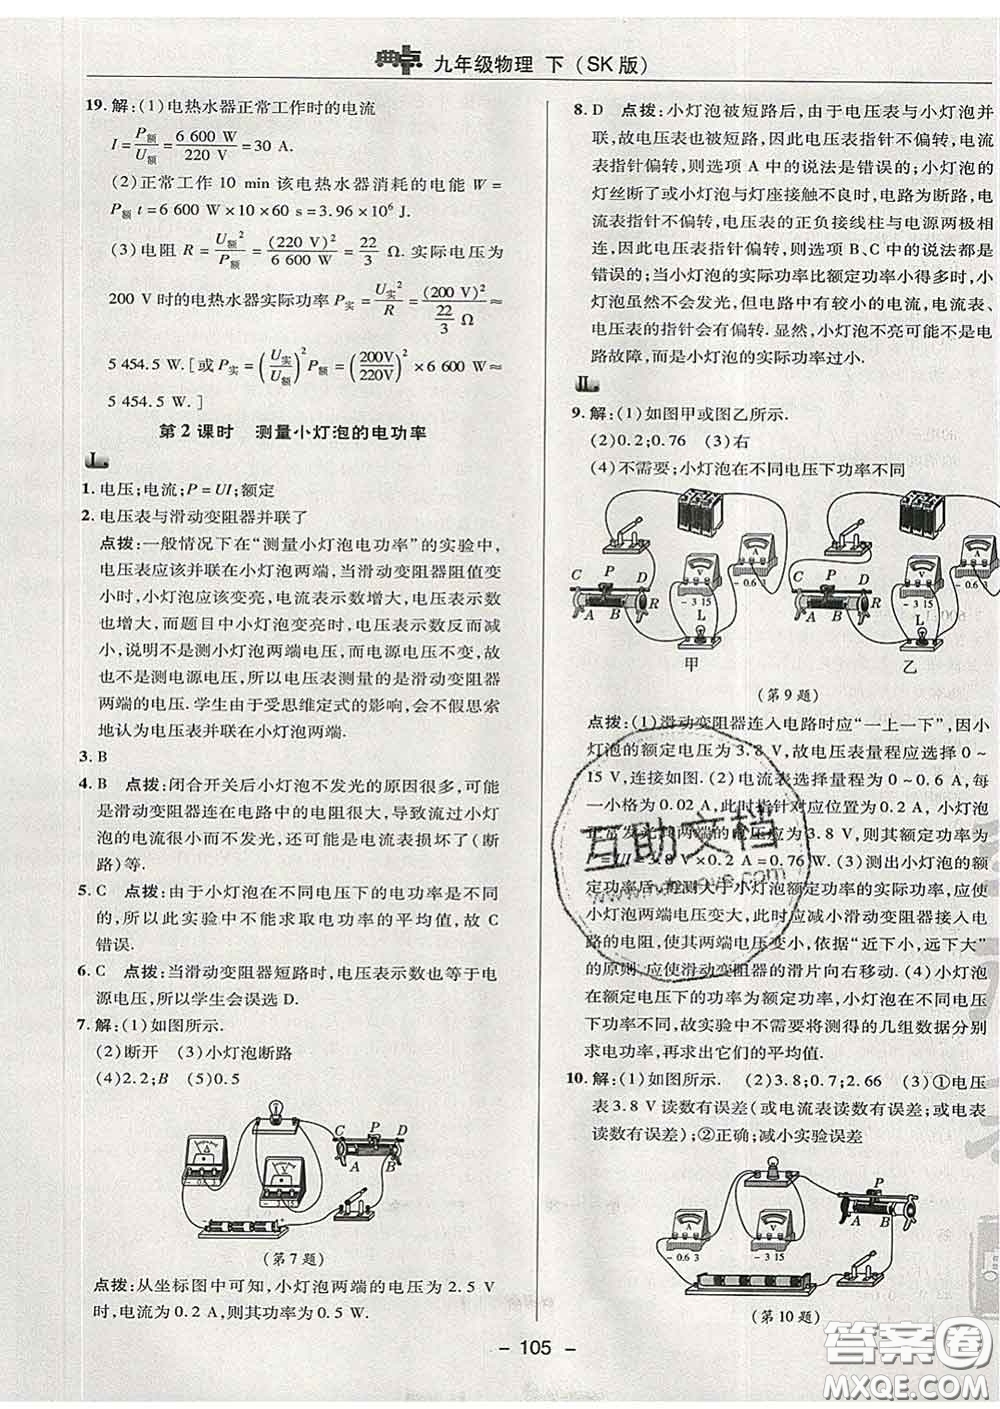 典点 九年级物理 下(SK版)
19.解:(1)电热水器正常工作时的电流
I=P额/U额=6 600 W/220 V=30 A.
(2)正常工作 10 min 该电热水器消耗的电能 W=
P额 t=6 600 W×10×60 s=3.96×10⁶ J.
(3)电阻 R=U额²/P额=(220 V)²/6 600 W=22/3 Ω.实际电压为
200 V 时的电热水器实际功率 P实=U实²/R=(200 V)²/(22/3 Ω)≈
5 454.5 W.[或 P实=(U实/U额)²P额=(200V/220V)²×6 600 W≈
5 454.5 W.]
第 2 课时 测量小灯泡的电功率
Ⅰ.
1.电压;电流;P=UI;额定
2.电压表与滑动变阻器并联了
点拨:一般情况下在“测量小灯泡电功率”的实验中,
电压表应该并联在小灯泡两端,当滑动变阻器阻值变
小时,小灯泡应该变亮,电流表示数增大,电压表示数
也增大,而题目中小灯泡变亮时,电压表示数反而减
小,说明不是测小灯泡两端电压,而电源电压不变,故
也不是测电源电压,所以电压表测量的是滑动变阻器
两端的电压.学生由于受思维定式的影响,会不假思索
地认为电压表并联在小灯泡两端.
3.B
4.B 点拨:闭合开关后小灯泡不发光的原因很多,可能
是滑动变阻器连在电路中的电阻很大,导致流过小灯
泡的电流很小而不发光,还可能是电流表损坏了(断
路)等.
5.C 点拨:由于小灯泡在不同电压下的电功率是不同
的,所以此实验中不能求取电功率的平均值,故 C
错误.
6.C 点拨:当滑动变阻器短路时,电压表示数也等于电
源电压,所以学生会误选 D.
7.解:(1)如图所示.
(2)断开 (3)小灯泡断路
(4)2.2;B (5)0.5
C P D
A B
A
V
(第 7 题)
点拨:从坐标图中可知,小灯泡两端的电压为 2.5 V
时,电流为 0.2 A,则其功率为 0.5 W.
8.D 点拨:小灯泡被短路后,由于电压表与小灯泡并
联,故电压表也被短路,因此电压表指针不偏转,电流
表指针偏转,故选项 A 中的说法是错误的;小灯泡的
灯丝断了或小灯泡与灯座接触不良时,电路为断路,电
流表指针不偏转,电压表的正负接线柱与电源两极相
连,因此电压表指针偏转,故选项 B、C 中的说法都是
错误的;当小灯泡的实际功率比额定功率小得多时,小
灯泡虽然不会发光,但电路中有较小的电流,电流表、
电压表的指针会有偏转.显然,小灯泡不亮可能不是电
路故障,而是小灯泡的实际功率过小.
Ⅱ.
9.解:(1)如图甲或图乙所示.
(2)0.2;0.76 (3)右
(4)不需要;小灯泡在不同电压下功率不同
C P D
A B R
V
A
- 3 15
- 0.6 3
L
甲
C P D
A B R
V
A
- 3 15
- 0.6 3
L
乙
(第 9 题)
点拨:(1)滑动变阻器连入电路时应“一上一下”,因小
灯泡的额定电压为 3.8 V,故电压表量程应选择 0~
15 V,连接如图.(2)电流表选择量程为 0~0.6 A,每
一小格为 0.02 A,此时指针对应位置为 0.2 A,小灯泡
正常发光时两端的电压应为 3.8 V,则其额定功率为
P=UI=3.8 V×0.2 A=0.76 W.(3)测出小灯泡的额
定功率后,要测大于小灯泡额定功率的实际功率,应使
小灯泡两端电压变大,此时应减小滑动变阻器接入电
路的电阻,使其两端电压变小,依据“近下小,远下大”
的原则,应使滑动变阻器的滑片向右移动.(4)小灯泡
在额定电压下的功率为额定功率,小灯泡在不同电压
下功率不同,故实验中不需要将测得的几组数据分别
求电功率,再求出它们的平均值.
10.解:(1)如图所示. (2)3.8;0.7;2.66 (3)①电压
表 3.8 V 读数有误差(或电流表读数有误差;或电表
读数有误差);②正确;减小实验误差
P
A B
- 0.6 3
- 3 15
(第 10 题)
互助文档
- 105 -
答案圈
MXQE.COM